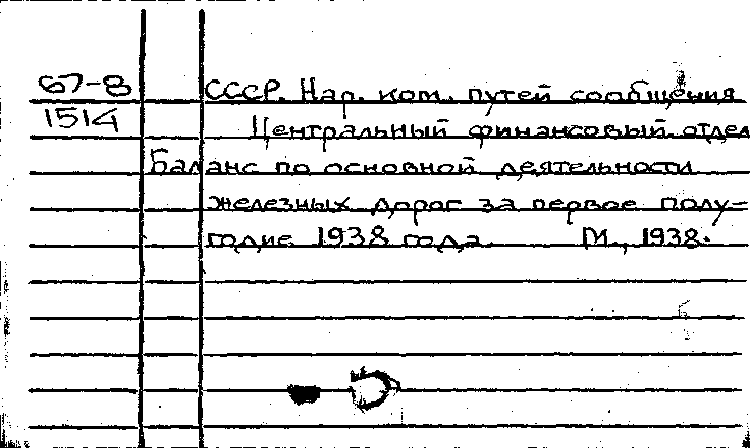 67-8 СССР. Нар. ком. путей сообщения
1514 Центральный финансовый отдел
Баланс по основной деятельности
железных дорог за первое полу-
годие 1938 года М., 1938.